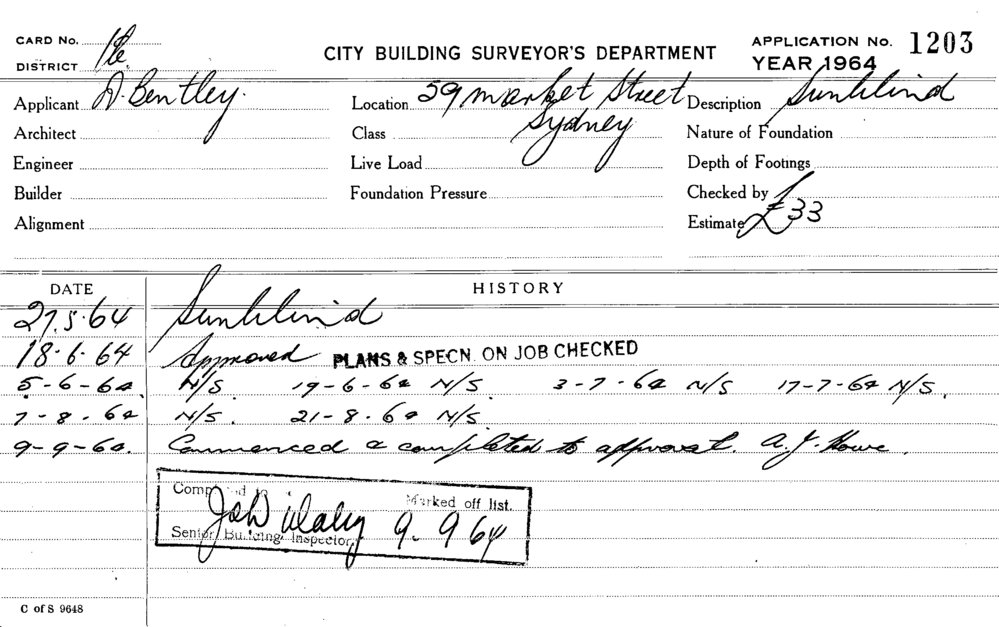 CARD No. 1te
CITY BUILDING SURVEYOR'S DEPARTMENT
APPLICATION No. 1203
DISTRICT
YEAR 1964
Applicant D. Bentley.
Location 59 Market Street
Description Sunblind
Architect
Class Sydney
Nature of Foundation
Engineer
Live Load
Depth of Footings
Builder
Foundation Pressure
Checked by
Alignment
Estimate £33
DATE HISTORY
27.5.64 Sunblind
18.6.64 Approved PLANS & SPECN. ON JOB CHECKED
5-6-64. N/S. 19-6-64 N/S. 3-7-64 N/S 17-7-64 N/S.
7-8-64 N/S. 21-8-64 N/S.
9-9-64. Commenced & completed to approval. A.J. Howe.
Marked off list.
9.9.64
Senior Building Inspector
C of S 9648